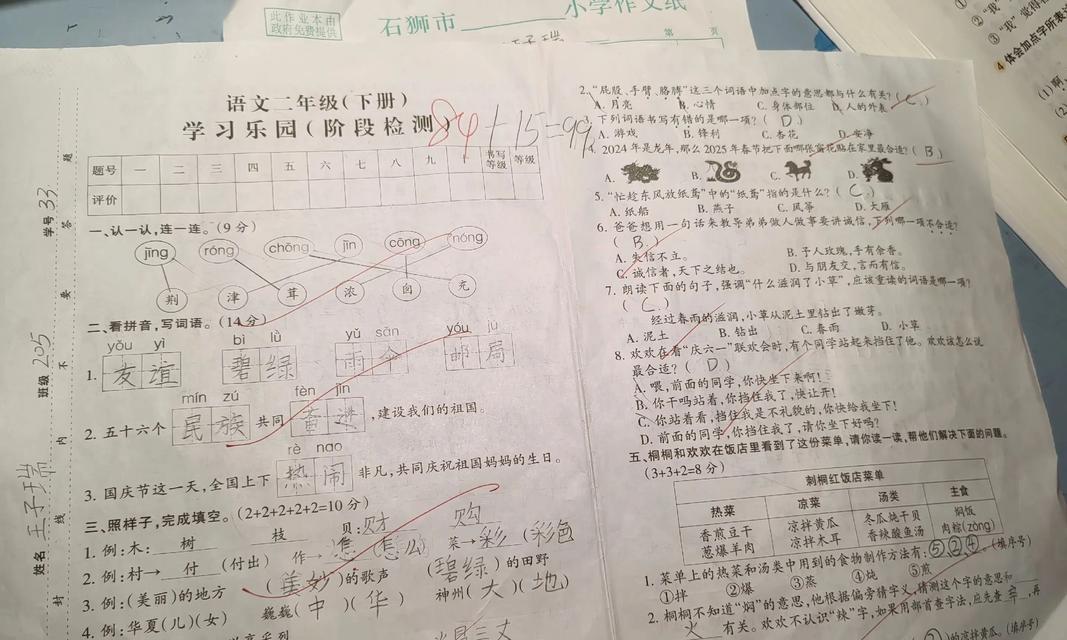 此作业本由
政府免费提供
石狮市
小学作文纸
第 页
① "
② "我"
③ "我"觉得
4 体会加点字所表达
(1)啊,
语文二年级(下册)
学习乐园(阶段检测)
84+15=99
题号 一 二 三 四 五 六 七 八 九 十 书写等级 等级
评价
学号 33
班级 205
姓名 王子瑞
密 封 线 内 不 要 答 题
一、认一认,连一连。(9分)
jīng róng chōng jīn cōng nóng
荆 津 茸 浓 囱 充
二、看拼音,写词语。(14分)
yǒu yì bì lǜ yǔ sǎn yóu jú
1. 友谊 碧绿 雨伞 邮局
mín zú fèn jìn
2. 五十六个 民族 共同 奋进 ,建设我们的祖国。
rè nao
3. 国庆节这一天,全国上下 热闹 非凡,共同庆祝祖国妈妈的生日。
三、照样子,完成填空。(2+2+2+2+2=10分)
1. 例:木: 树 枝 贝: 财 购
2. 例:村→ 付 (付出) 作→ 怎 (怎么) 菜→ 彩 (彩色
3. 例:(美丽)的地方 (美妙)的歌声 (碧绿)的田野
4. 例:华夏(儿)(女) 巍巍(中)(华) 神州(大)(地)
2. "屁股、手臂、胳膊"这三个词语中加点字的意思都与什么有关?( C )
A. 月亮 B. 心情 C. 身体部位 D. 人的外表
3. 下列词语书写有错的是哪一项?( D )
A. 游戏 B. 锋利 C. 杏花 D. 安净
4. 2024年是龙年,那么2025年春节把下面哪张窗花贴在家里最合适?( B )
A. B. C. D.
5. "忙趁东风放纸鸢"中的"纸鸢"指的是什么?( C )
A. 纸船 B. 燕子 C. 风筝 D. 大雁
6. 爸爸想用一句话来教导弟弟做人做事要讲诚信,下列哪一项不合适?
( B )
A. 失信不立。 B. 予人玫瑰,手有余香。
C. 诚信者,天下之结也。 D. 与朋友交,言而有信。
7. 朗读下面的句子,强调"什么滋润了小草",应该重读的词语是哪一项?
( C )
经过春雨的滋润,小草从泥土里钻出了嫩芽。
A. 泥土 B. 钻出 C. 春雨 D. 小草
8. 欢欢在看"庆六一"联欢会时,有个同学站起来挡住了他。欢欢该怎么说
最合适?( D )
A. 喂,前面的同学,你快坐下来啊!
B. 你干吗站着,你挡住我了,快让开!
C. 你站着看,挡住我是不礼貌的,你快给我坐下!
D. 前面的同学,你挡住我了,请你坐下好吗?
五、桐桐和欢欢在饭店里看到了这份菜单,请你读一读,帮他们解决下面的问题。
(3+3+2=8分)
刺桐红饭店菜单
热菜 凉菜 汤类 主食
香煎豆干 凉拌黄瓜 冬瓜炖干贝 焖饭
葱爆羊肉 凉拌木耳 香辣酸鱼汤 肉粽(zòng)
1. 菜单上的热菜和汤类中用到的食物制作方法有:⑤②④。(填序号)
①拌 ②爆 ③蒸 ④炖 ⑤煎
2. 桐桐不知道"焖"的意思,他根据偏旁猜字义,猜测这个字的意思和
火 有关。欢欢不认识"辣"字,如果用部首查字法,应先查 辛 ,再